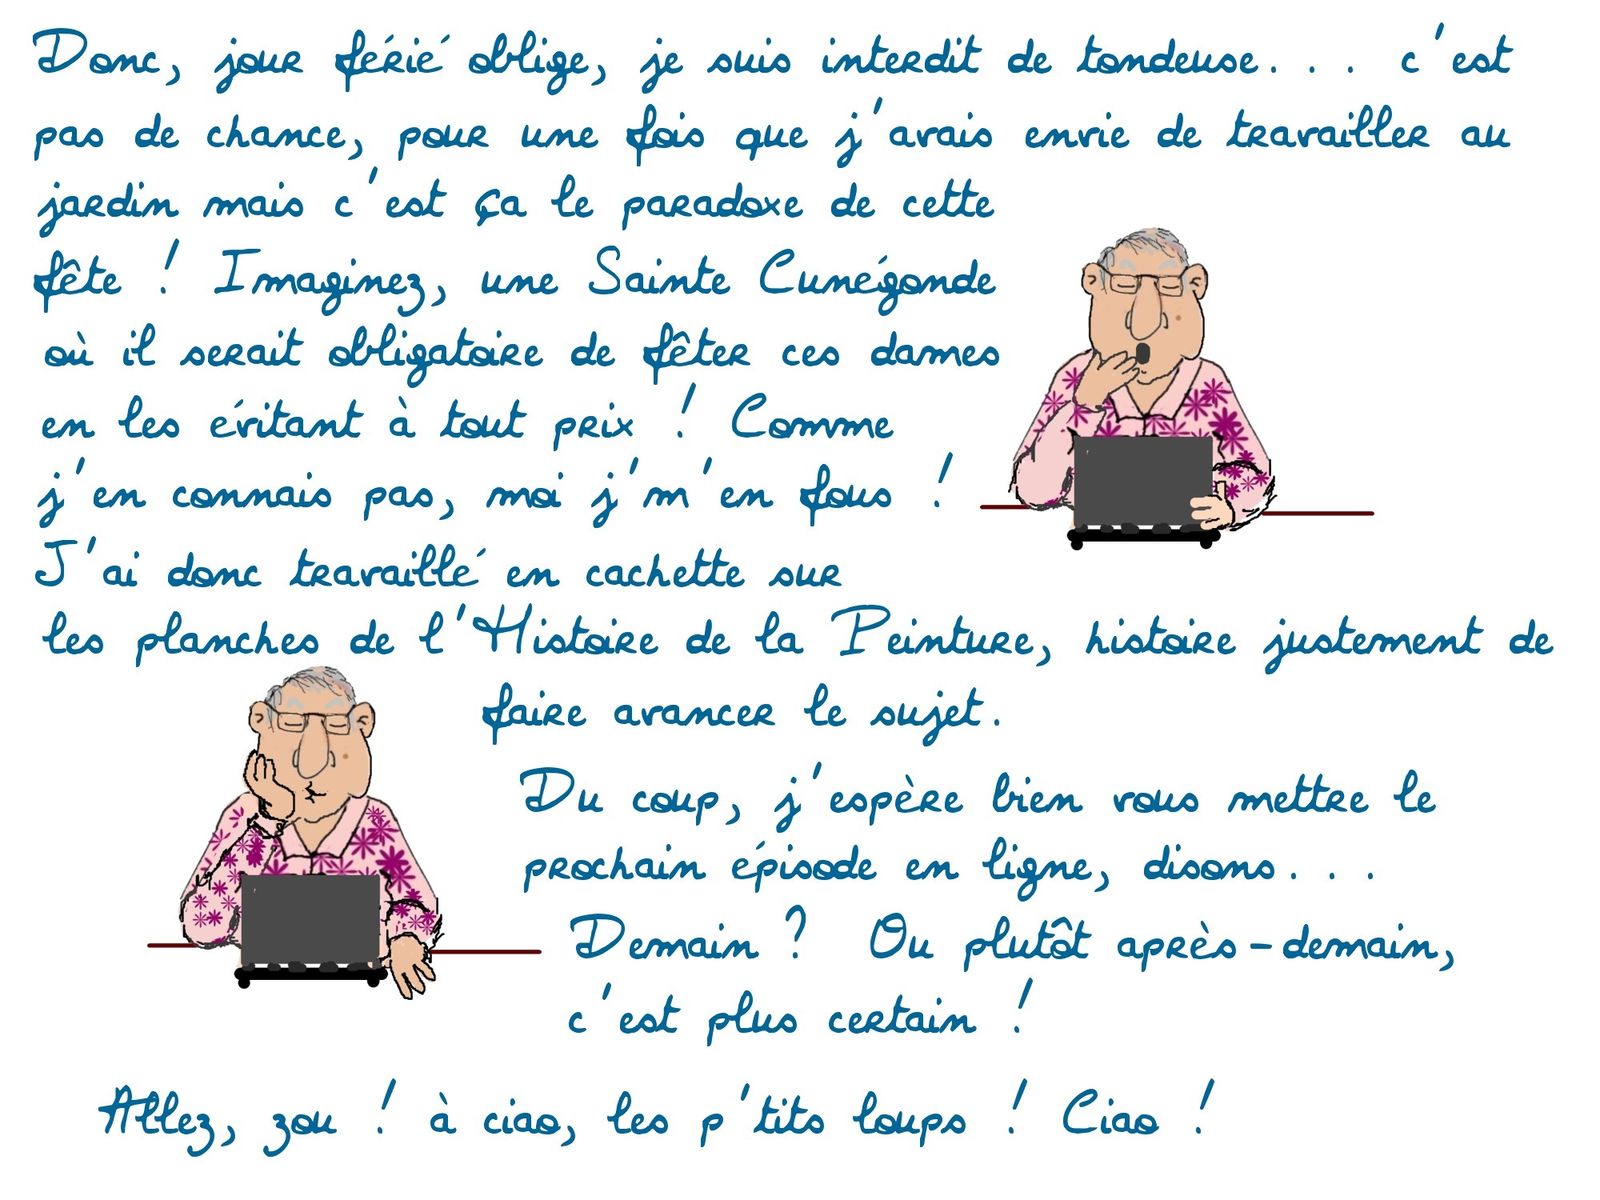 Donc, jour férié oblige, je suis interdit de tondeuse... c'est
pas de chance, pour une fois que j'avais envie de travailler au
jardin mais c'est ça le paradoxe de cette
fête ! Imaginez, une Sainte Cunégonde
où il serait obligatoire de fêter ces dames
en les évitant à tout prix ! Comme
j'en connais pas, moi j'm'en fous !
J'ai donc travaillé en cachette sur
les planches de l'Histoire de la Peinture, histoire justement de
faire avancer le sujet.
Du coup, j'espère bien vous mettre le
prochain épisode en ligne, disons...
Demain ? Ou plutôt après-demain,
c'est plus certain !
Allez, zou ! à ciao, les p'tits loups ! Ciao !